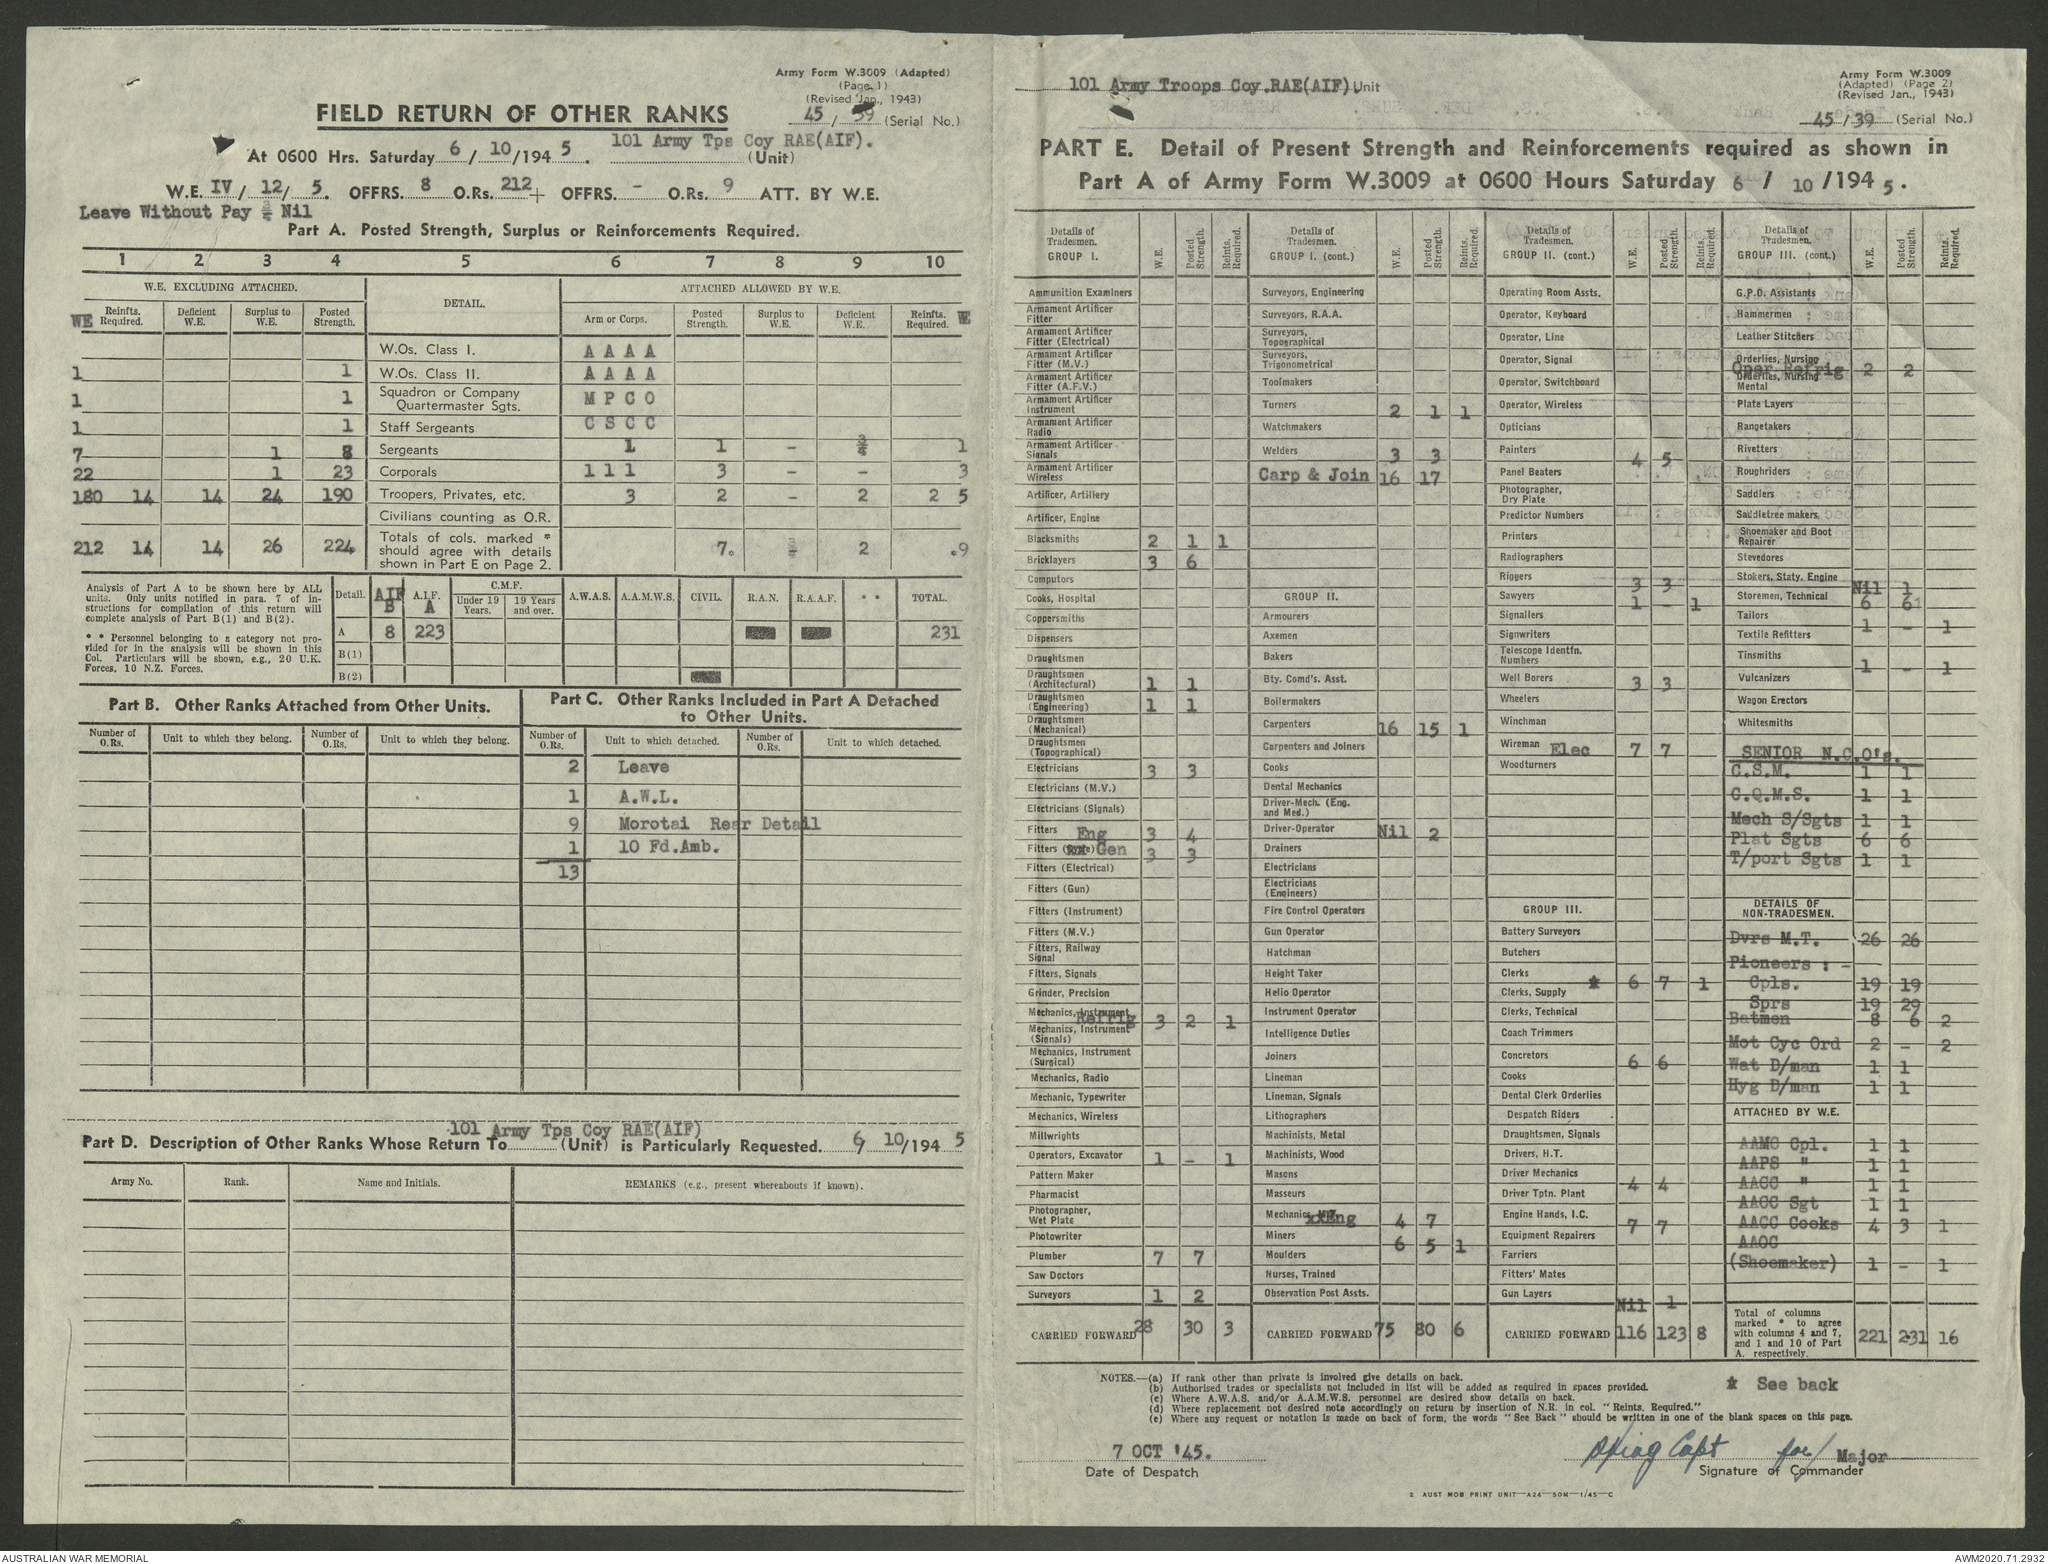 Army Form W.3009 (Adapted)
(Page 1)
(Revised Jan., 1943)
FIELD RETURN OF OTHER RANKS
45 / 39 (Serial No.)
At 0600 Hrs. Saturday 6 / 10 /194 5. 101 Army Tps Coy RAE(AIF). (Unit)
W.E. IV / 12/ 5. OFFRS. 8 O.Rs. 212 + OFFRS. - O.Rs. 9 ATT. BY W.E.
Leave Without Pay - Nil
Part A. Posted Strength, Surplus or Reinforcements Required.
1 2 3 4 5 6 7 8 9 10
W.E. EXCLUDING ATTACHED. DETAIL. ATTACHED ALLOWED BY W.E.
WE Reinfts. Required. Deficient W.E. Surplus to W.E. Posted Strength. Arm or Corps. Posted Strength. Surplus to W.E. Deficient W.E. Reinfts. Required. WE
W.Os. Class I. A A A A
1 1 W.Os. Class II. A A A A
1 1 Squadron or Company Quartermaster Sgts. M P C O
1 1 Staff Sergeants C S C C
7 1 8 Sergeants 1 1 - - 1
22 1 23 Corporals 1 1 1 3 - - 3
180 14 14 24 190 Troopers, Privates, etc. 3 2 - 2 2 5
Civilians counting as O.R.
212 14 14 26 224 Totals of cols. marked * should agree with details shown in Part E on Page 2. 7* - 2 .9
Analysis of Part A to be shown here by ALL
units. Only units notified in para. 7 of in-
structions for compilation of this return will
complete analysis of Part B(1) and B(2).
* * Personnel belonging to a category not pro-
vided for in the analysis will be shown in this
Col. Particulars will be shown, e.g., 20 U.K.
Forces, 10 N.Z. Forces.
Detail. AIF B A.I.F. A C.M.F. Under 19 Years. 19 Years and over. A.W.A.S. A.A.M.W.S. CIVIL. R.A.N. R.A.A.F. * * TOTAL.
A 8 223 231
B(1)
B(2)
Part B. Other Ranks Attached from Other Units.
Part C. Other Ranks Included in Part A Detached
to Other Units.
Number of O.Rs. Unit to which they belong. Number of O.Rs. Unit to which they belong. Number of O.Rs. Unit to which detached. Number of O.Rs. Unit to which detached.
2 Leave
1 A.W.L.
9 Morotai Rear Detail
1 10 Fd.Amb.
13
101 Army Tps Coy RAE(AIF)
Part D. Description of Other Ranks Whose Return To (Unit) is Particularly Requested. 6/ 10/194 5
Army No. Rank. Name and Initials. REMARKS (e.g., present whereabouts if known).
101 Army Troops Coy.RAE(AIF) Unit
Army Form W.3009
(Adapted) (Page 2)
(Revised Jan., 1943)
45 / 39 (Serial No.)
PART E. Detail of Present Strength and Reinforcements required as shown in
Part A of Army Form W.3009 at 0600 Hours Saturday 6 / 10 /194 5.
Details of Tradesmen. GROUP I. W.E. Posted Strength. Reints. Required.
Ammunition Examiners
Armament Artificer Fitter
Armament Artificer Fitter (Electrical)
Armament Artificer Fitter (M.V.)
Armament Artificer Fitter (A.F.V.)
Armament Artificer Instrument
Armament Artificer Radio
Armament Artificer Signals
Armament Artificer Wireless
Artificer, Artillery
Artificer, Engine
Blacksmiths 2 1 1
Bricklayers 3 6
Computors
Cooks, Hospital
Coppersmiths
Dispensers
Draughtsmen
Draughtsmen (Architectural) 1 1
Draughtsmen (Engineering) 1 1
Draughtsmen (Mechanical)
Draughtsmen (Topographical)
Electricians 3 3
Electricians (M.V.)
Electricians (Signals)
Fitters Eng 3 4
Fitters Gen 3 3
Fitters (Electrical)
Fitters (Gun)
Fitters (Instrument)
Fitters (M.V.)
Fitters, Railway Signal
Fitters, Signals
Grinder, Precision
Mechanics, Instrument Refrig 3 2 1
Mechanics, Instrument (Signals)
Mechanics, Instrument (Surgical)
Mechanics, Radio
Mechanic, Typewriter
Mechanics, Wireless
Millwrights
Operators, Excavator 1 - 1
Pattern Maker
Pharmacist
Photographer, Wet Plate
Photowriter
Plumber 7 7
Saw Doctors
Surveyors 1 2
CARRIED FORWARD 28 30 3
Details of Tradesmen. GROUP I. (cont.) W.E. Posted Strength. Reints. Required.
Surveyors, Engineering
Surveyors, R.A.A.
Surveyors, Topographical
Surveyors, Trigonometrical
Toolmakers
Turners 2 1 1
Watchmakers
Welders 3 3
Carp & Join 16 17
GROUP II.
Armourers
Axemen
Bakers
Bty. Comd's. Asst.
Boilermakers
Carpenters 16 15 1
Carpenters and Joiners
Cooks
Dental Mechanics
Driver-Mech. (Eng. and Med.)
Driver-Operator Nil 2
Drainers
Electricians
Electricians (Engineers)
Fire Control Operators
Gun Operator
Hatchman
Height Taker
Helio Operator
Instrument Operator
Intelligence Duties
Joiners
Lineman
Lineman, Signals
Lithographers
Machinists, Metal
Machinists, Wood
Masons
Masseurs
Mechanics xxEng 4 7
Miners 6 5 1
Moulders
Nurses, Trained
Observation Post Assts.
CARRIED FORWARD 75 80 6
Details of Tradesmen. GROUP II. (cont.) W.E. Posted Strength. Reints. Required.
Operating Room Assts.
Operator, Keyboard
Operator, Line
Operator, Signal
Operator, Switchboard
Operator, Wireless
Opticians
Painters 4 5
Panel Beaters
Photographer, Dry Plate
Predictor Numbers
Printers
Radiographers
Riggers 3 3
Sawyers 1 - 1
Signallers
Signwriters
Telescope Identfn. Numbers
Well Borers 3 3
Wheelers
Winchman
Wireman Elec 7 7
Woodturners
GROUP III.
Battery Surveyors
Butchers
Clerks * 6 7 1
Clerks, Supply
Clerks, Technical
Coach Trimmers
Concretors 6 6
Cooks
Dental Clerk Orderlies
Despatch Riders
Draughtsmen, Signals
Drivers, H.T.
Driver Mechanics 4 4
Driver Tptn. Plant
Engine Hands, I.C. 7 7
Equipment Repairers
Farriers
Fitters' Mates
Gun Layers Nil 1
CARRIED FORWARD 116 123 8
Details of Tradesmen. GROUP III. (cont.) W.E. Posted Strength. Reints. Required.
G.P.O. Assistants
Hammermen
Leather Stitchers
Orderlies, Nursing Oper Refrig 2 2
Orderlies, Nursing Mental
Plate Layers
Rangetakers
Rivetters
Roughriders
Saddlers
Saddletree makers
Shoemaker and Boot Repairer
Stevedores
Stokers, Staty. Engine Nil 1
Storemen, Technical 6 6
Tailors 1 - 1
Textile Refitters
Tinsmiths 1 - 1
Vulcanizers
Wagon Erectors
Whitesmiths
SENIOR N.C.O's.
C.S.M. 1 1
C.Q.M.S. 1 1
Mech S/Sgts 1 1
Plat Sgts 6 6
T/port Sgts 1 1
DETAILS OF NON-TRADESMEN.
Dvrs M.T. 26 26
Pioneers : -
Cpls. 19 19
Sprs 19 29
Batmen 8 6 2
Mot Cyc Ord 2 - 2
Wat D/man 1 1
Hyg D/man 1 1
ATTACHED BY W.E.
AAMC Cpl. 1 1
AAPS " 1 1
AACC " 1 1
AACC Sgt 1 1
AACC Cooks 4 3 1
AAOC
(Shoemaker) 1 - 1
Total of columns marked * to agree with columns 4 and 7, and 1 and 10 of Part A. respectively. 221 231 16
NOTES.—(a) If rank other than private is involved give details on back.
(b) Authorised trades or specialists not included in list will be added as required in spaces provided.
(c) Where A.W.A.S. and/or A.A.M.W.S. personnel are desired show details on back.
(d) Where replacement not desired note accordingly on return by insertion of N.R. in col. "Reints. Required."
(e) Where any request or notation is made on back of form, the words "See Back" should be written in one of the blank spaces on this page.
* See back
7 OCT '45.
Date of Despatch
King Capt for/ Major
Signature of Commander
2 AUST MOB PRINT UNIT—A24—50M—1/45—C
AUSTRALIAN WAR MEMORIAL
AWM2020.71.2932